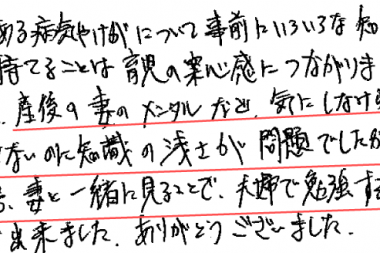 ある病気やけがについて事前にいろいろな知
持てることは育児の安心感につながりま
産後の妻のメンタルなど、気にしなけ
ないのに知識の浅さが問題でしたが
、妻と一緒に見ることで、夫婦で勉強す
出来ました。ありがとうございました。